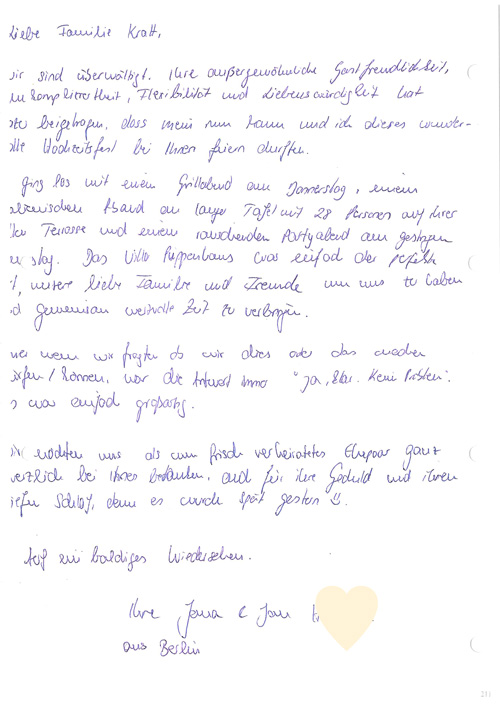 Liebe Familie Kraft,
wir sind überwältigt. Ihre außergewöhnliche Gastfreundlichkeit,
unkompliziertheit, Flexibilität und Liebenswürdigkeit hat
beigetragen, dass mein nun Mann und ich dieses wunder-
volle Hochzeitsfest bei Ihnen feiern durften.
ging los mit einem Grillabend am Donnerstag, einem
italienischen Abend an langer Tafel mit 28 Personen auf Ihrer
Terrasse und einem rauschenden Partyabend am gestrigen
Das Villa Puppenhaus was einfach der perfekte
unsere liebe Familie und Freunde um uns zu haben
und gemeinsam wertvolle Zeit zu verbringen.
wenn wir fragten ob wir dies oder das machen
dürfen / können, war die Antwort immer "Ja, klar. Kein Problem".
es war einfach großartig.
Wir möchten uns als nun frisch verheiratetes Ehepaar ganz
herzlich bei Ihnen bedanken, auch für ihre Geduld und ihren
tiefen Schlaf, denn es wurde spät gestern
Auf ein baldiges Wiedersehen.
Ihre Jana & Jan
aus Berlin